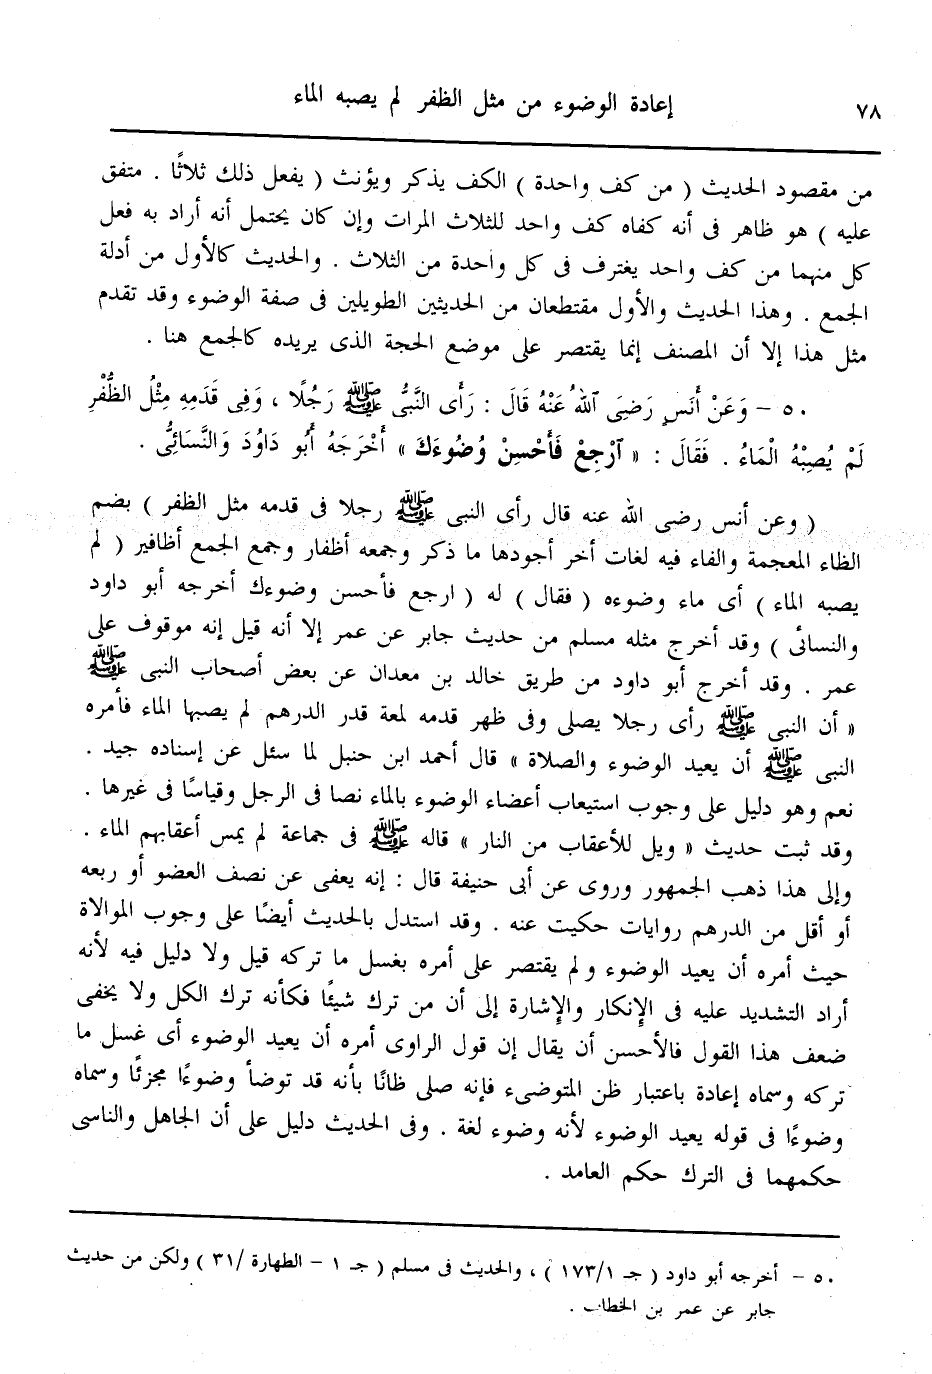 ٧٨
إعادة الوضوء من مثل الظفر لم يصبه الماء
من مقصود الحديث ( من كف واحدة ) الكف يذكر ويؤنث ( يفعل ذلك ثلاثًا . متفق
عليه ) هو ظاهر فى أنه كفاه كف واحد للثلاث المرات وإن كان يحتمل أنه أراد به فعل
كل منهما من كف واحد يغترف فى كل واحدة من الثلاث . والحديث كالأول من أدلة
الجمع . وهذا الحديث والأول مقتطعان من الحديثين الطويلين فى صفة الوضوء وقد تقدم
مثل هذا إلا أن المصنف إنما يقتصر على موضع الحجة الذى يريده كالجمع هنا .
٥٠ – وَعَنْ أَنَسٍ رَضِىَ ٱللهُ عَنْهُ قَالَ : رَأَى النَّبِىُّ ﷺ رَجُلًا ، وَفِى قَدَمِهِ مِثْلُ الظُّفْرِ
لَمْ يُصِبْهُ الْمَاءُ . فَقَالَ : « ٱرْجِعْ فَأَحْسِنْ وُضُوءَكَ » أَخْرَجَهُ أَبُو دَاوُدَ وَالنَّسَائِىُّ .
( وعن أنس رضى الله عنه قال رأى النبى ﷺ رجلا فى قدمه مثل الظفر ) بضم
الظاء المعجمة والفاء فيه لغات أخر أجودها ما ذكر وجمعه أظفار وجمع الجمع أظافير ( لم
يصبه الماء ) أى ماء وضوءه ( فقال ) له ( ارجع فأحسن وضوءك أخرجه أبو داود
والنسائى ) وقد أخرج مثله مسلم من حديث جابر عن عمر إلا أنه قيل إنه موقوف على
عمر . وقد أخرج أبو داود من طريق خالد بن معدان عن بعض أصحاب النبى ﷺ
« أن النبى ﷺ رأى رجلا يصلى وفى ظهر قدمه لمعة قدر الدرهم لم يصبها الماء فأمره
النبى ﷺ أن يعيد الوضوء والصلاة » قال أحمد ابن حنبل لما سئل عن إسناده جيد .
نعم وهو دليل على وجوب استيعاب أعضاء الوضوء بالماء نصا فى الرجل وقياسًا فى غيرها .
وقد ثبت حديث « ويل للأعقاب من النار » قاله ﷺ فى جماعة لم يمس أعقابهم الماء .
وإلى هذا ذهب الجمهور وروى عن أبى حنيفة قال : إنه يعفى عن نصف العضو أو ربعه
أو أقل من الدرهم روايات حكيت عنه . وقد استدل بالحديث أيضًا على وجوب الموالاة
حيث أمره أن يعيد الوضوء ولم يقتصر على أمره بغسل ما تركه قيل ولا دليل فيه لأنه
أراد التشديد عليه فى الإنكار والإشارة إلى أن من ترك شيئًا فكأنه ترك الكل ولا يخفى
ضعف هذا القول فالأحسن أن يقال إن قول الراوى أمره أن يعيد الوضوء أى غسل ما
تركه وسماه إعادة باعتبار ظن المتوضىء فإنه صلى ظانًا بأنه قد توضأ وضوءًا مجزئًا وسماه
وضوءًا فى قوله يعيد الوضوء لأنه وضوء لغة . وفى الحديث دليل على أن الجاهل والناسى
حكمهما فى الترك حكم العامد .
٥٠ – أخرجه أبو داود ( جـ ١/١٧٣ ) ، والحديث فى مسلم ( جـ ١ – الطهارة /٣١ ) ولكن من حديث
جابر عن عمر بن الخطاب .